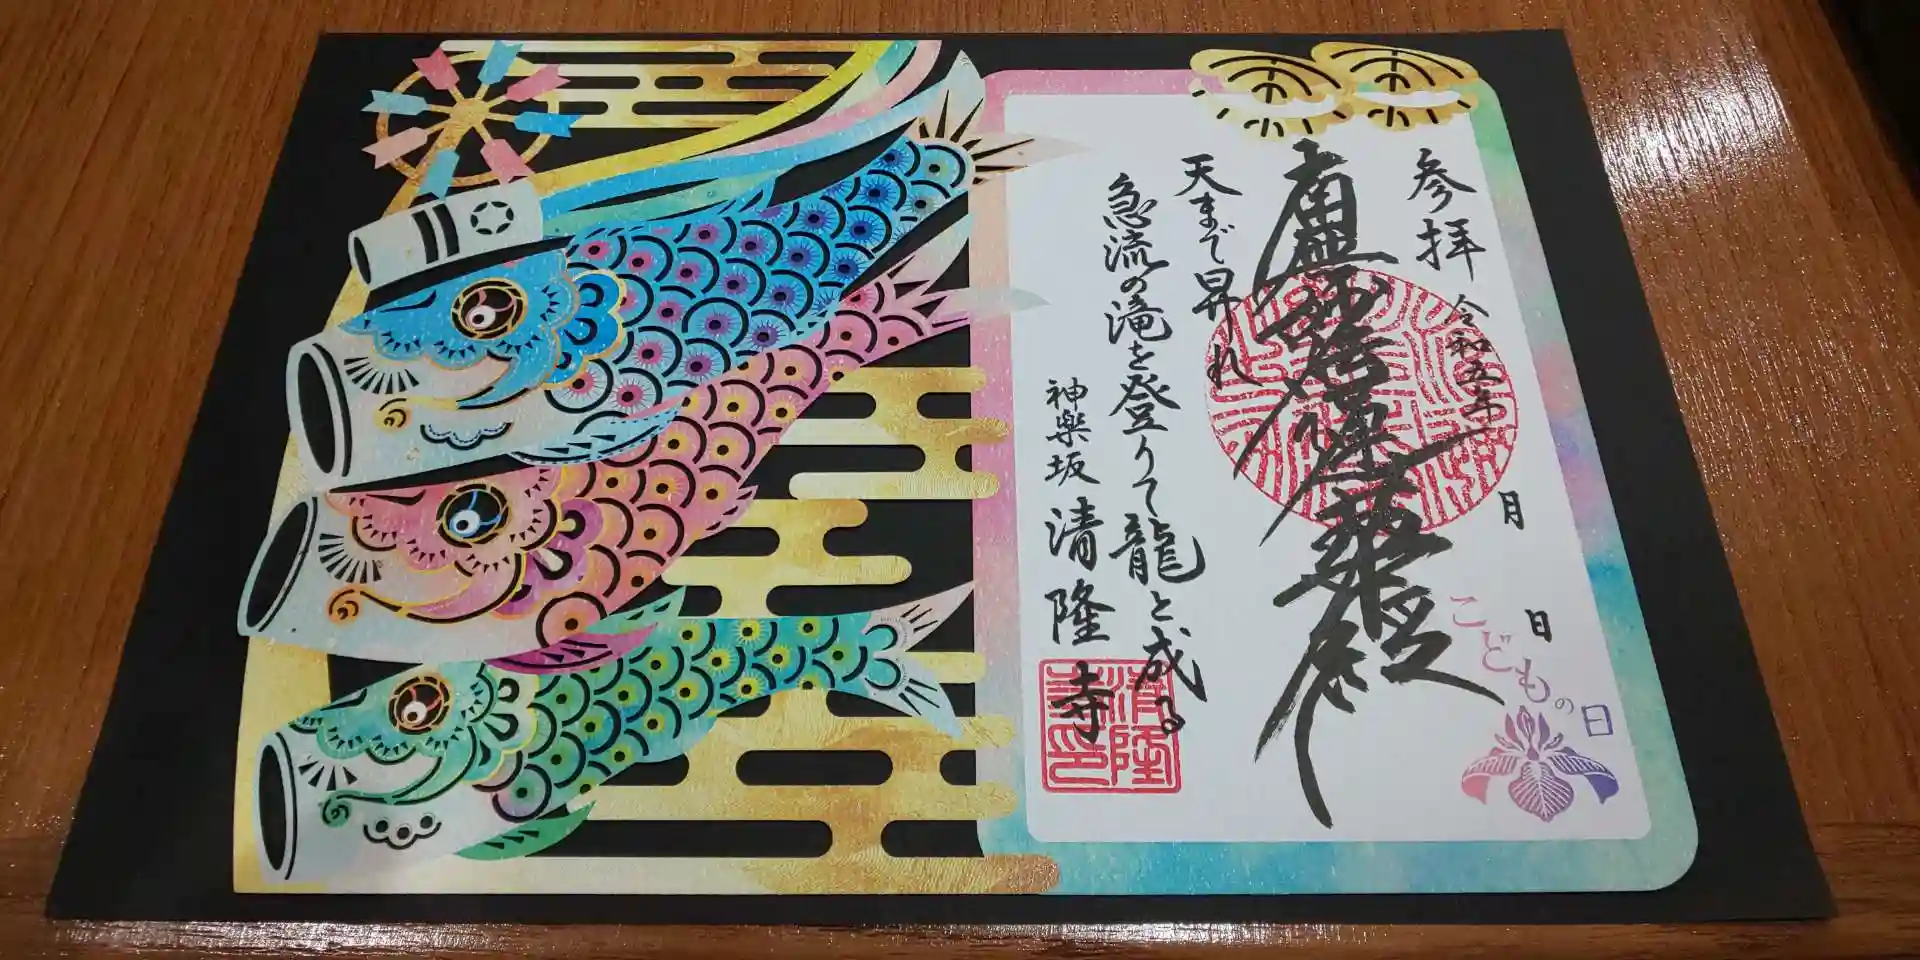 参拝 令和五年 月 日
南無妙法蓮華経
天まで昇れ
急流の滝を登りて龍と成る
神樂坂 清隆寺
清隆寺印
こどもの日